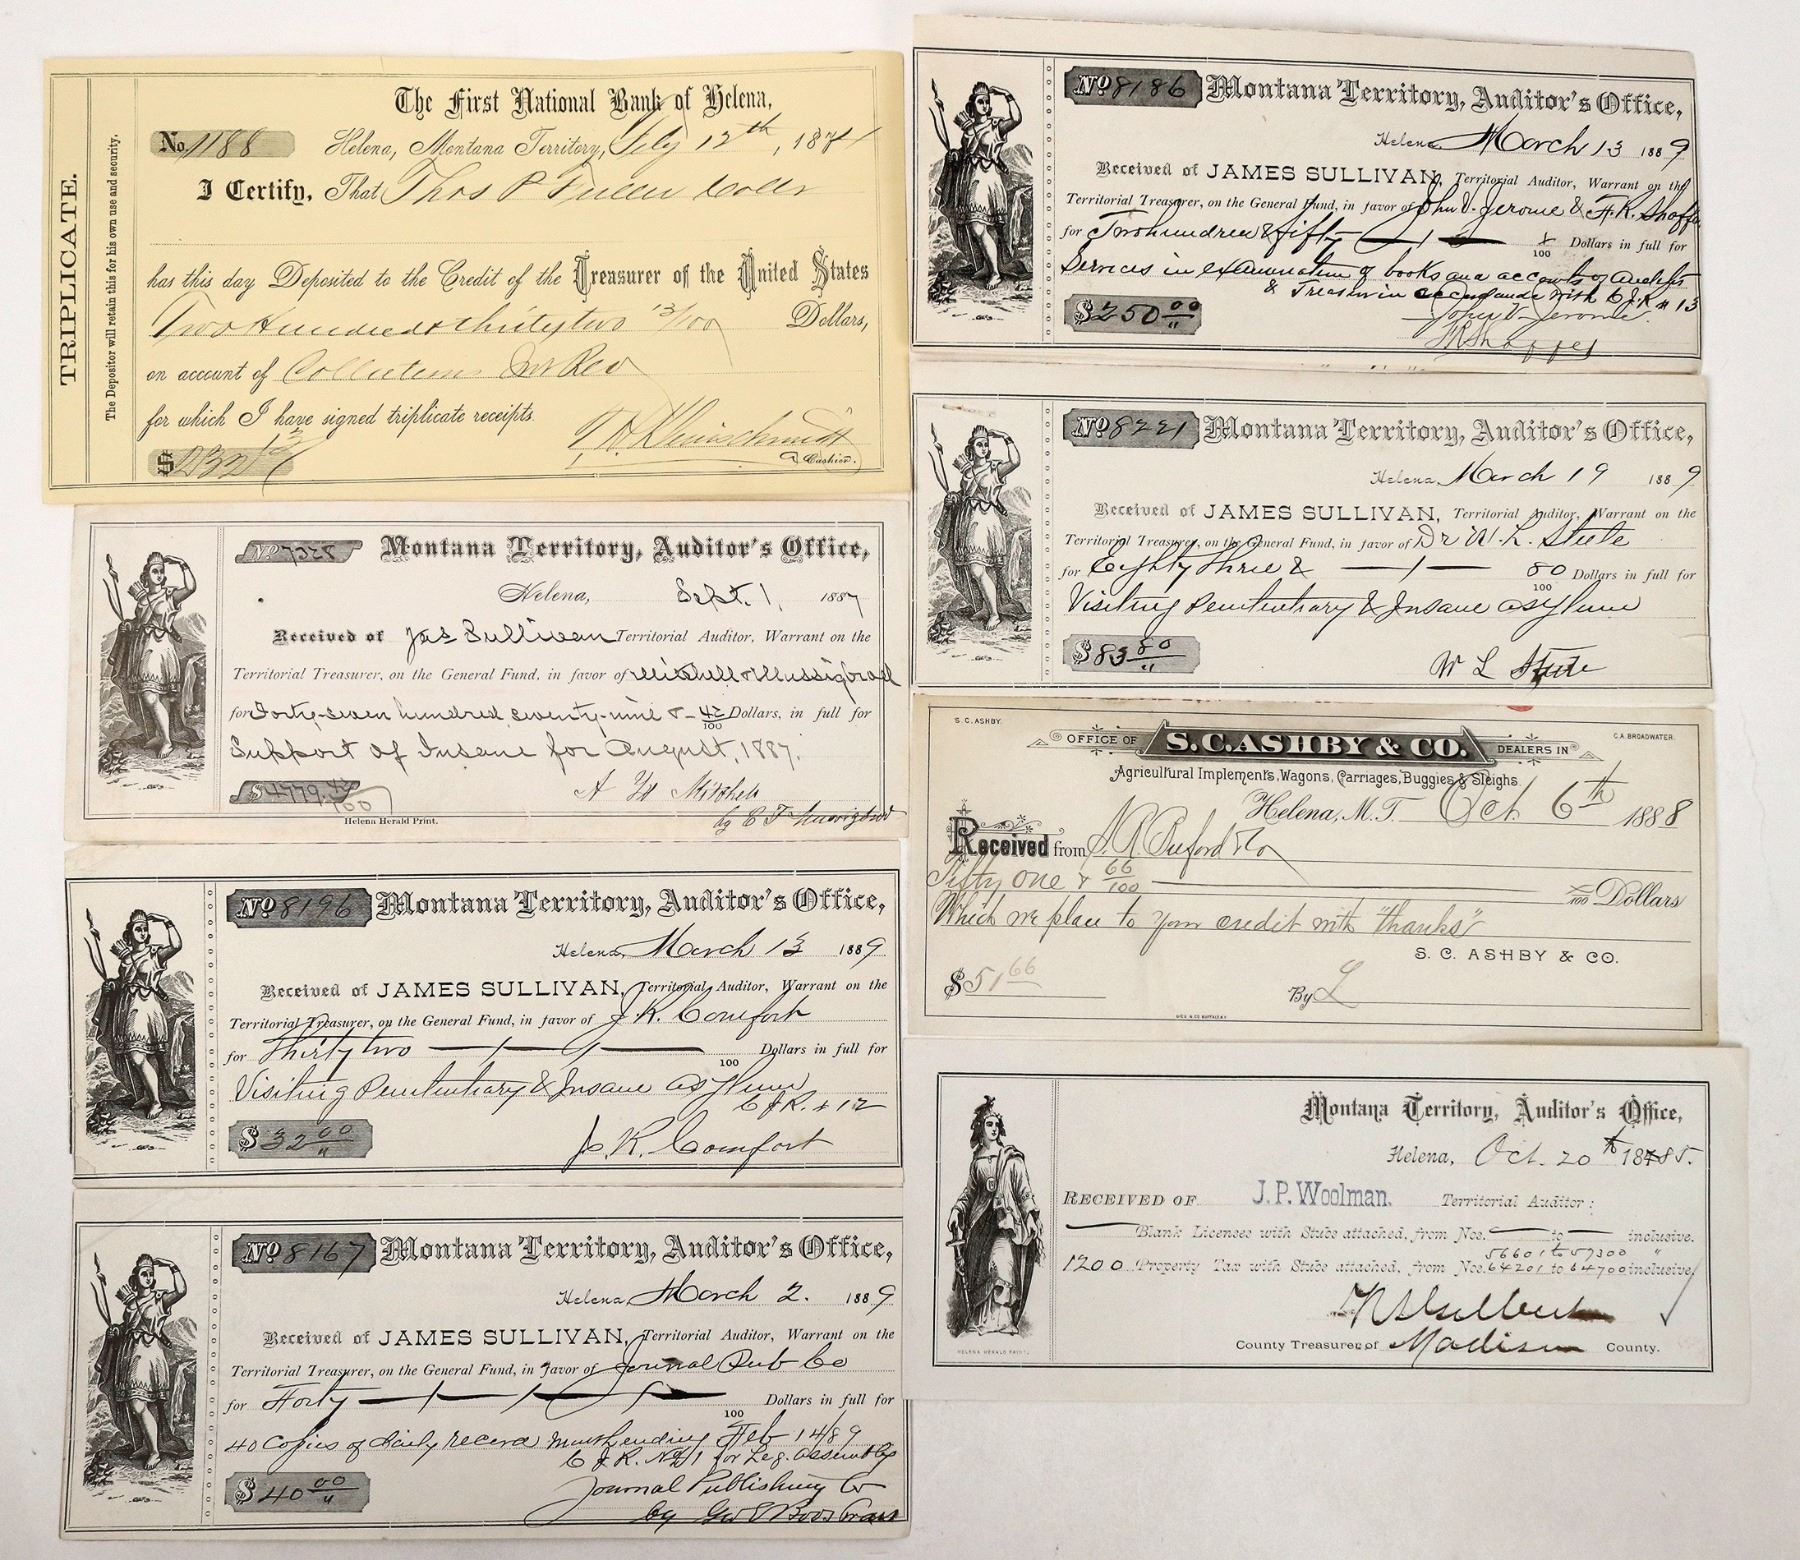 TRIPLICATE.
The Depositor will retain this for his own use and security.
The First National Bank of Helena,
No. 1188 Helena, Montana Territory, July 12th, 1874
I Certify, That Thos P Fuller Collr
has this day Deposited to the Credit of the Treasurer of the United States
Two Hundred & thirty two 13/100 Dollars,
on account of Collections Int Rev
for which I have signed triplicate receipts.
$232 13 T H Kleinschmidt
Cashier.
No 7328 Montana Territory, Auditor's Office,
Helena, Sept. 1, 1887
Received of Jas Sullivan Territorial Auditor, Warrant on the
Territorial Treasurer, on the General Fund, in favor of Mitchell & Mussigbrod
for Forty-seven hundred seventy-nine & 42/100 Dollars, in full for
Support of Insane for August, 1887.
$4779.42/100 A H Mitchell
by
Helena Herald Print.
No 8196 Montana Territory, Auditor's Office,
Helena, March 13 1889
Received of JAMES SULLIVAN, Territorial Auditor, Warrant on the
Territorial Treasurer, on the General Fund, in favor of J. K. Comfort
for Thirty two 100 Dollars in full for
Visiting Penitentiary & Insane asylum
C J R. # 12
$32 00 J. K. Comfort
No 8167 Montana Territory, Auditor's Office,
Helena, March 2. 1889
Received of JAMES SULLIVAN, Territorial Auditor, Warrant on the
Territorial Treasurer, on the General Fund, in favor of Journal Pub Co
for Forty 100 Dollars in full for
40 Copies of daily record Month ending Feb 14/89
C J R. No 1 for Leg. assembly
$40 00 Journal Publishing Co
by Geo
No 8186 Montana Territory, Auditor's Office,
Helena March 13 1889
Received of JAMES SULLIVAN, Territorial Auditor, Warrant on the
Territorial Treasurer, on the General Fund, in favor of John D. Jerome & H. K. Shaffer
for Two hundred & fifty x/100 Dollars in full for
Services in examination of books and accounts of Auditor
& Treasurer in accordance with C J R # 13
$250 00 John D. Jerome
Shaffer
No 8221 Montana Territory, Auditor's Office,
Helena, March 19 1889
Received of JAMES SULLIVAN, Territorial Auditor, Warrant on the
Territorial Treasurer, on the General Fund, in favor of Dr W. L. Steele
for Eighty three & 80/100 Dollars in full for
Visiting Penitentiary & Insane asylum
$83 80 W L Steele
S. C. ASHBY. C. A. BROADWATER.
OFFICE OF S. C. ASHBY & CO. DEALERS IN
Agricultural Implements, Wagons, Carriages, Buggies & Sleighs.
Helena, M.T. Oct 6th 1888
Received from S. R. Buford & Co
Fifty one & 66/100 /100 Dollars
Which we place to your credit with "thanks"
S. C. ASHBY & CO.
$51 66 By L
Montana Territory, Auditor's Office,
Helena, Oct. 20th 1885.
RECEIVED OF J. P. Woolman, Territorial Auditor:
Blank Licenses with Stubs attached, from Nos. to inclusive.
56601 to 57300 "
1200 Property Tax with Stubs attached, from Nos. 64201 to 64700 inclusive,
County Treasurer of Madison County.
HELENA HERALD PRINT.